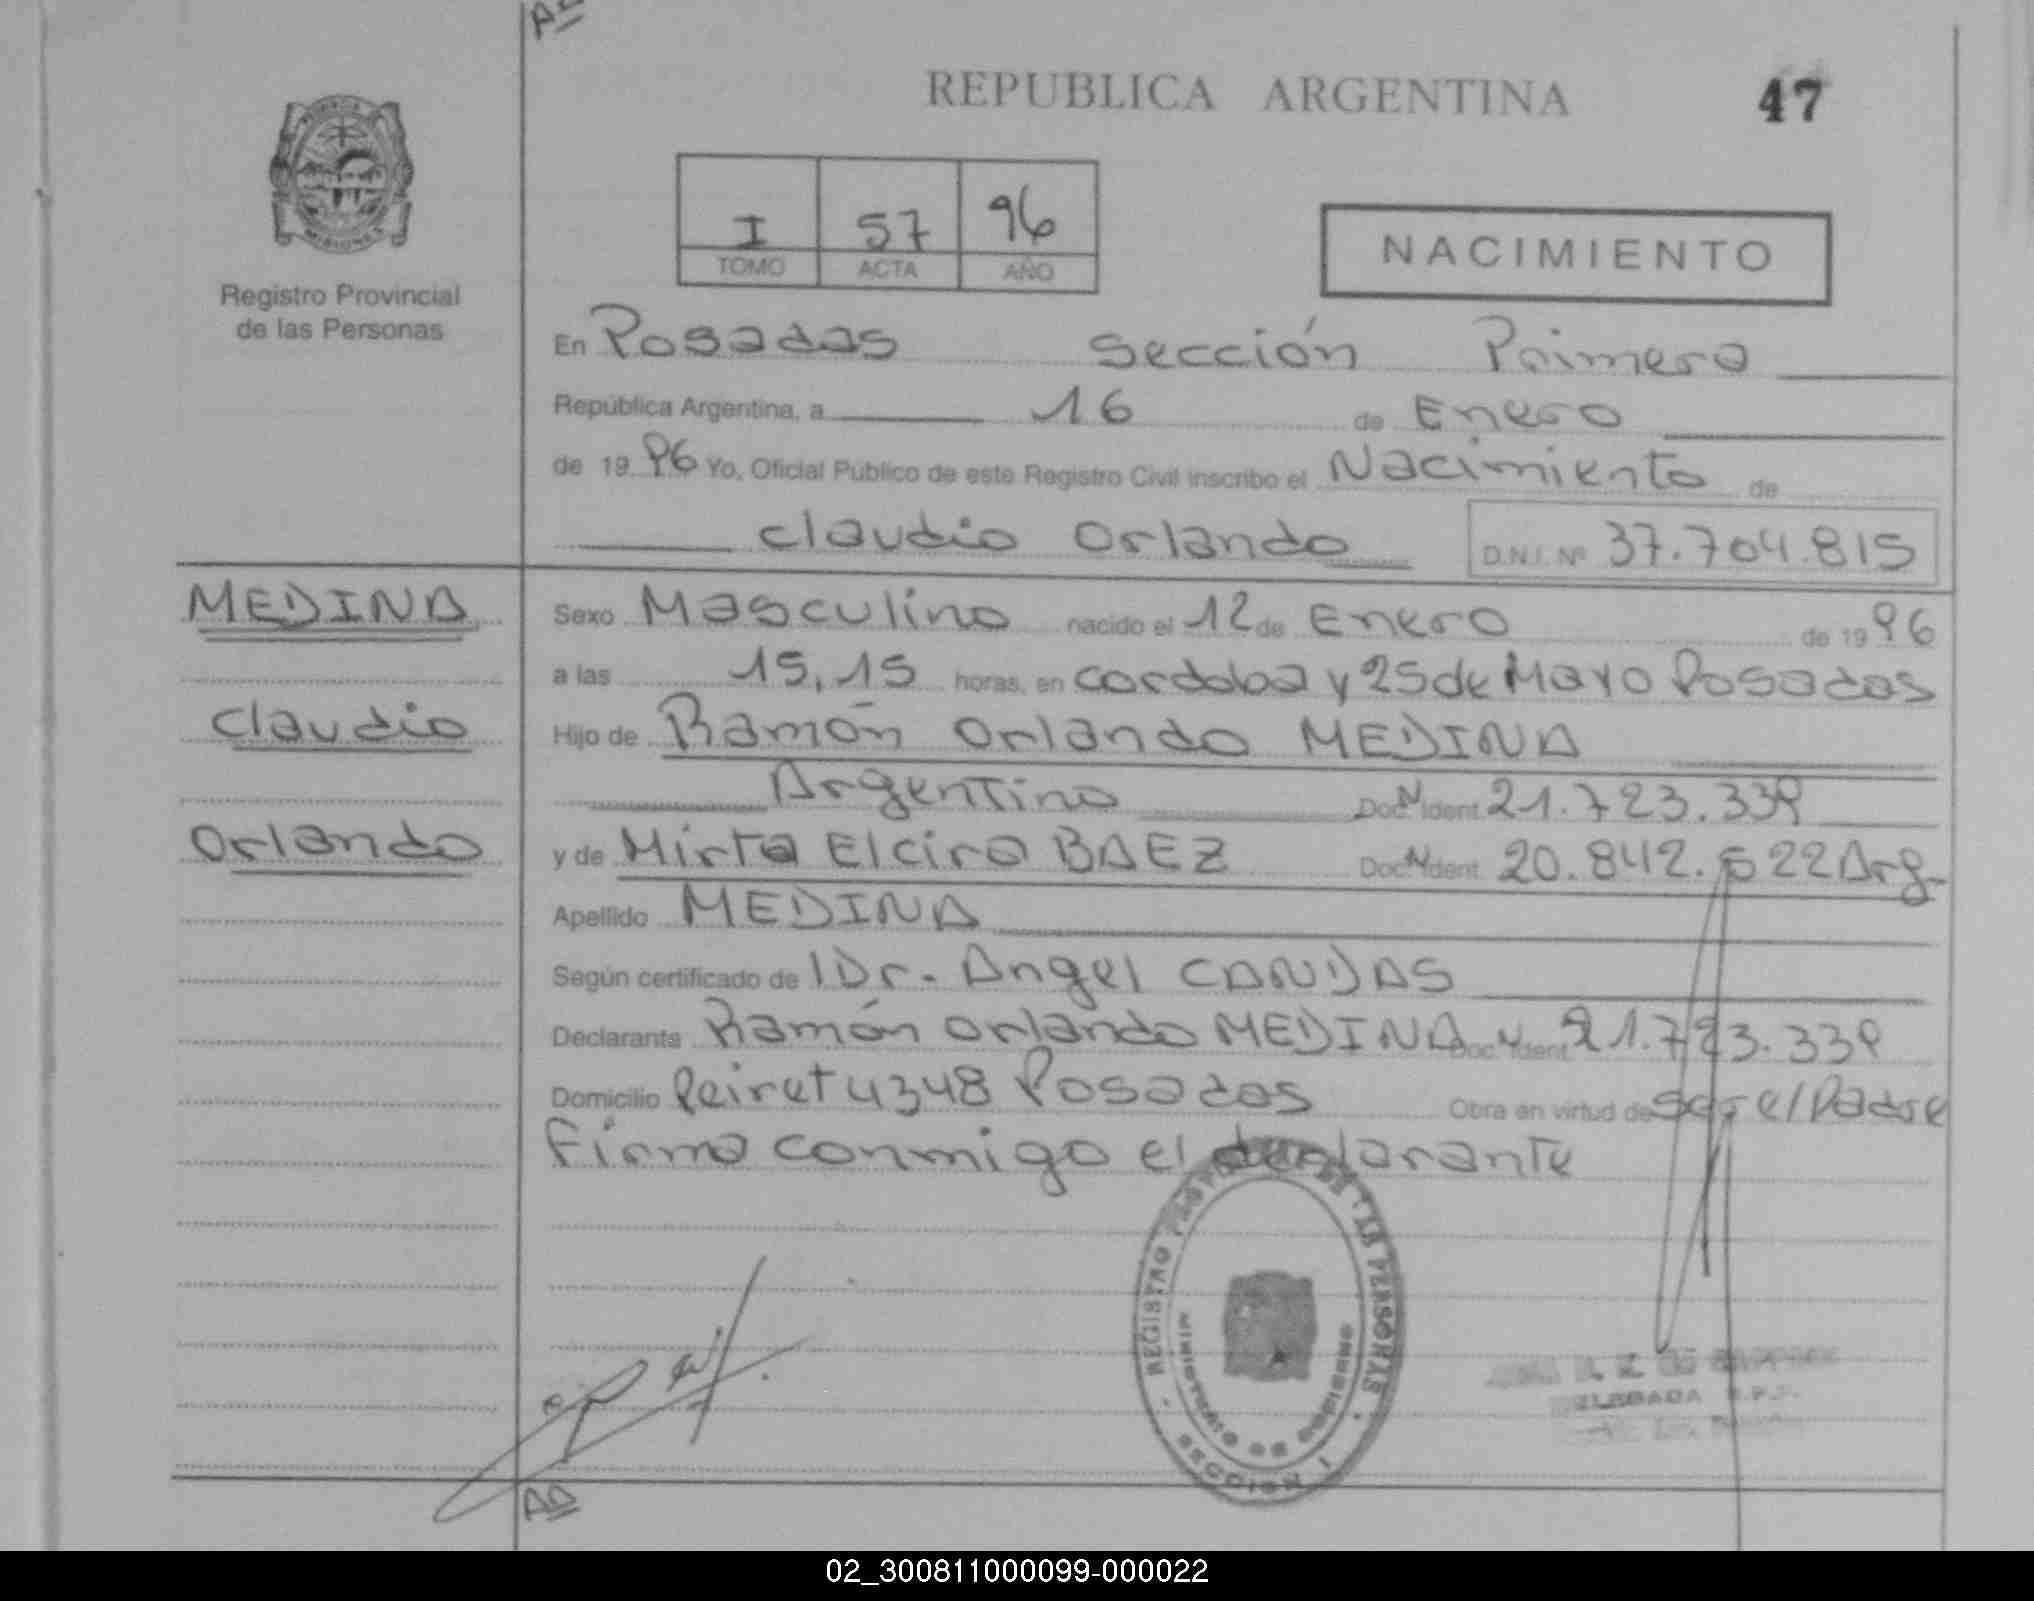 REPUBLICA ARGENTINA
47
MISIONES
Registro Provincial
de las Personas
I 57 96
TOMO ACTA AÑO
NACIMIENTO
En Posadas Sección Primera
República Argentina, a 16 de Enero
de 1996 Yo, Oficial Público de este Registro Civil inscribo el Nacimiento de
Claudio Orlando D.N.I. Nº 37.704.815
MEDINA
Claudio
Orlando
Sexo Masculino nacido el 12 de Enero de 1996
a las 15,15 horas, en Cordoba y 25 de Mayo Posadas
Hijo de Ramón Orlando MEDINA
Argentino Doc. N Ident. 21.723.339
y de Mirta Elcira BAEZ Doc. N Ident. 20.842.522 Arg.
Apellido MEDINA
Según certificado de Dr. Angel CANDAS
Declarante Ramón Orlando MEDINA Doc. N Ident. 21.723.339
Domicilio Peiret 4348 Posadas Obra en virtud de ser el Padre
Firma conmigo el declarante
REGISTRO DE LAS PERSONAS
MINISTERIO DE GOBIERNO
- SECCION I -
02_300811000099-000022